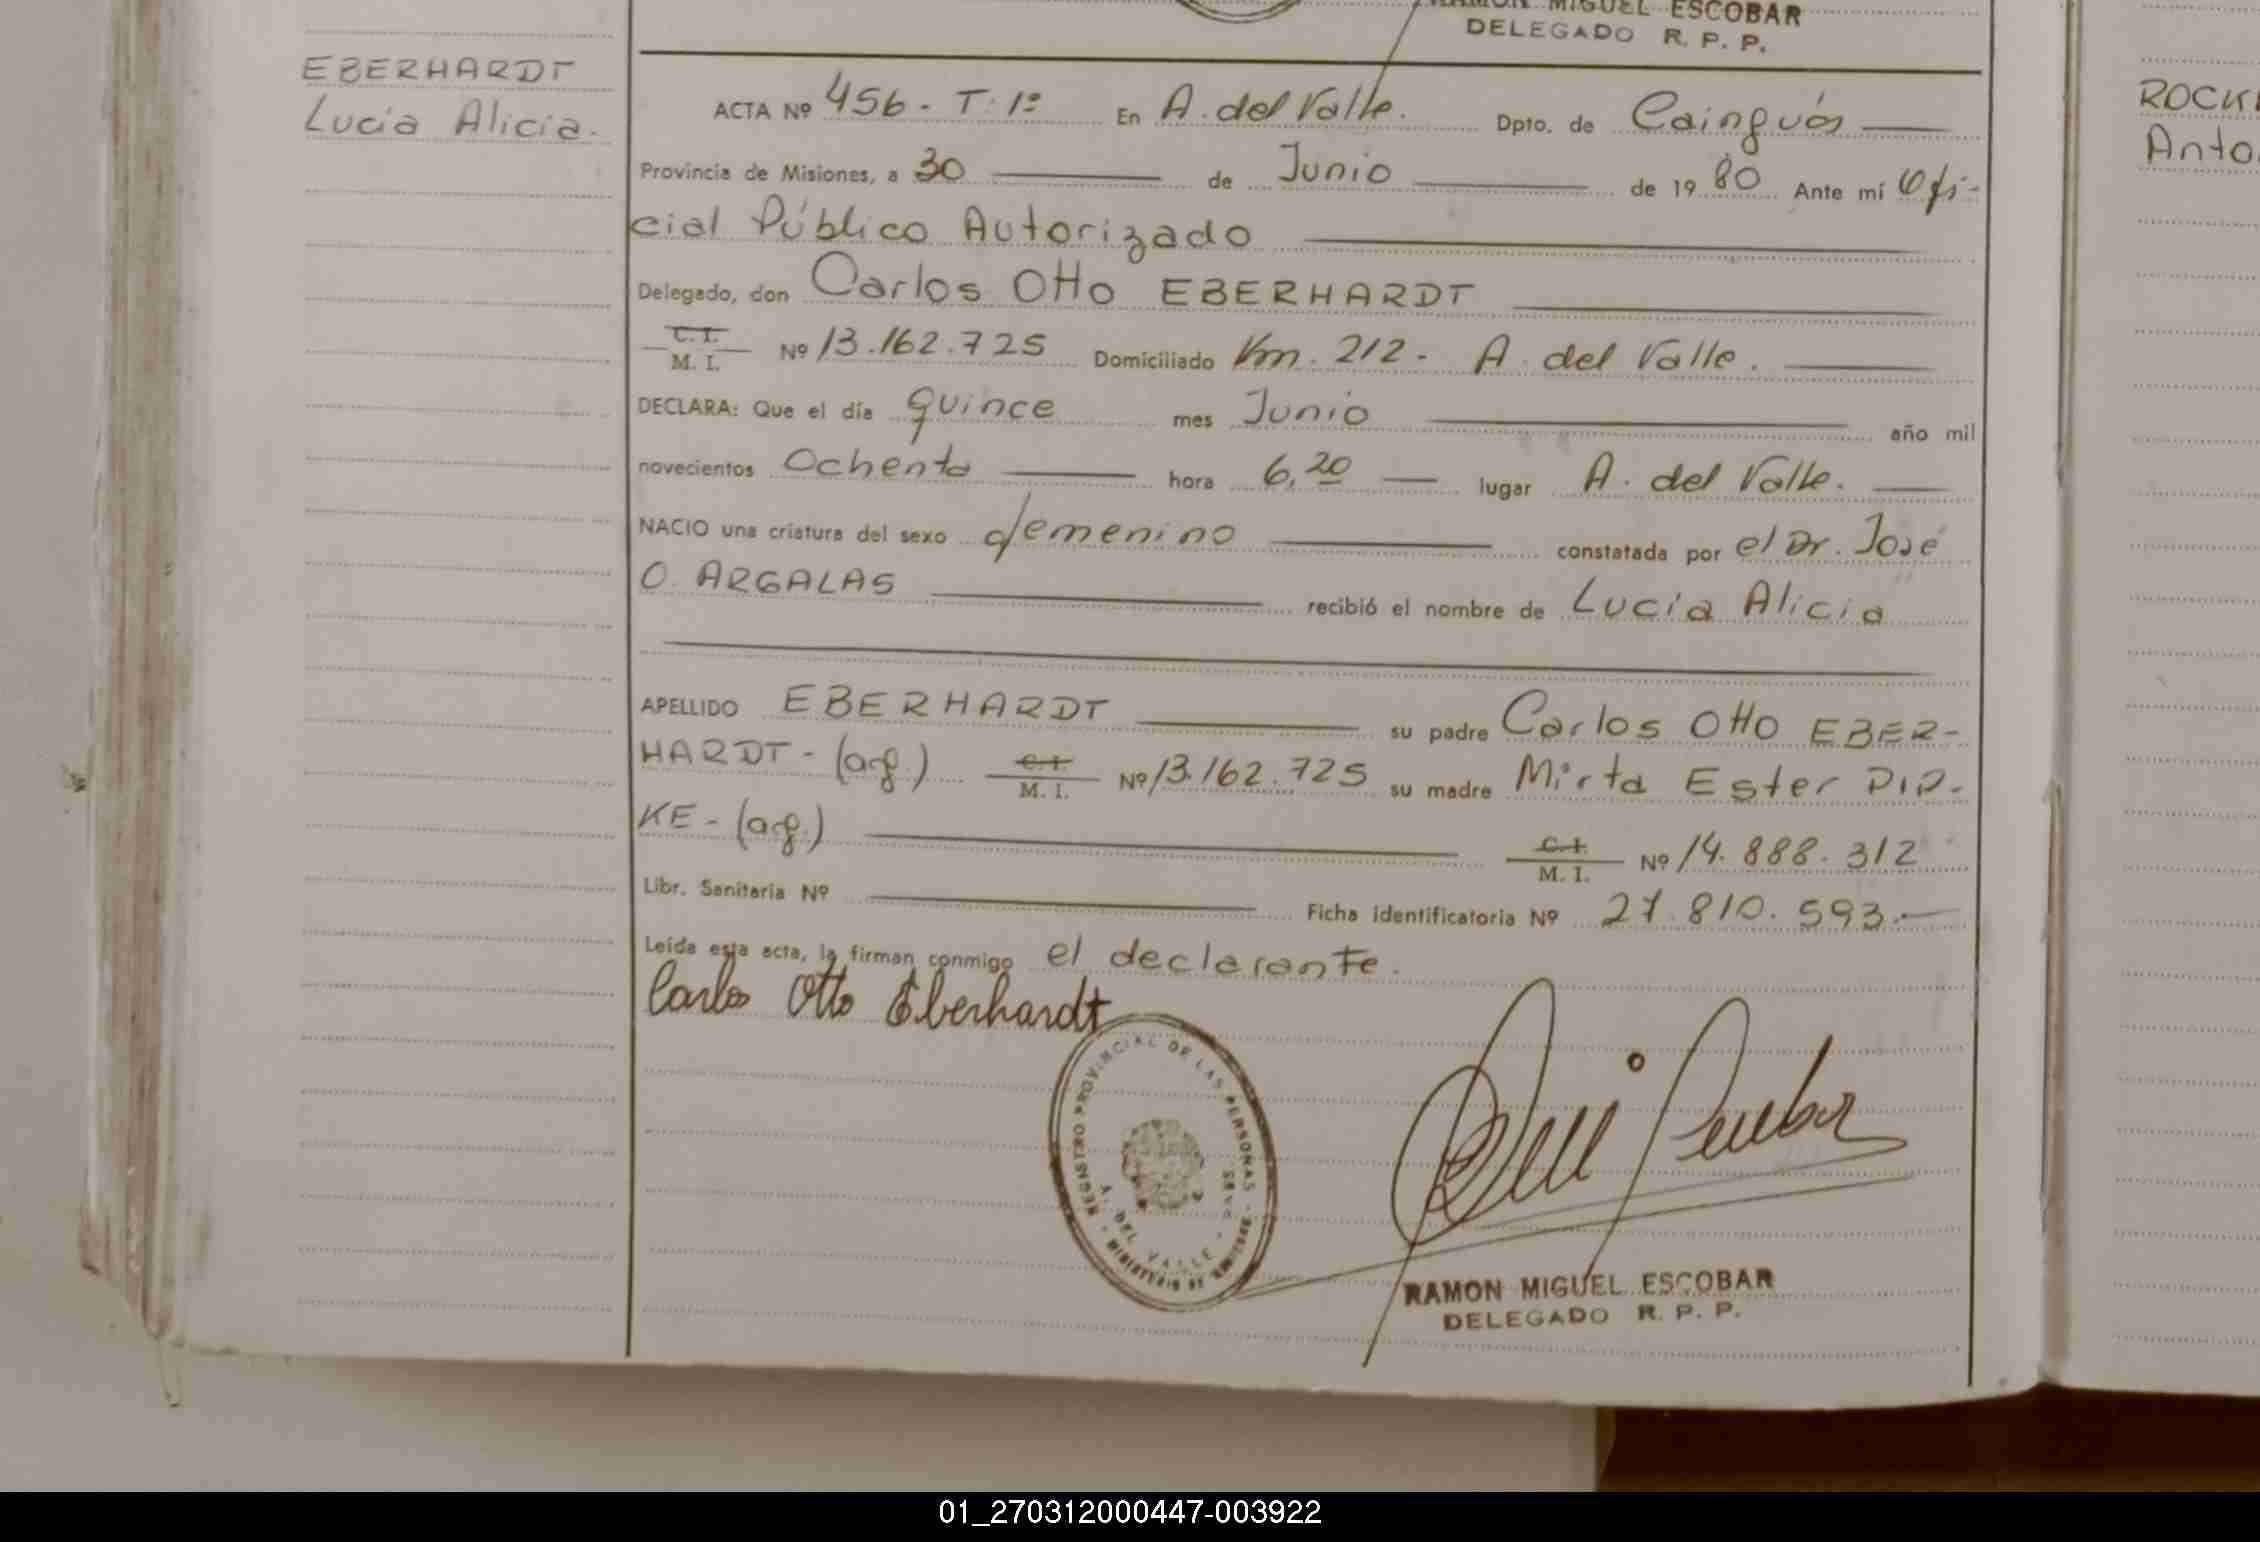 RAMON MIGUEL ESCOBAR
DELEGADO R. P. P.
EBERHARDT
Lucía Alicia.
ACTA Nº 456 - T: 1º En A. del Valle. Dpto. de Cainguás
Provincia de Misiones, a 30 de Junio de 19 80 Ante mí Ofi-
cial Público Autorizado
Delegado, don Carlos Otto EBERHARDT
C. I.
M. I. Nº 13.162.725 Domiciliado Km. 212 - A. del Valle.
DECLARA: Que el día quince mes Junio año mil
novecientos Ochenta hora 6,20 lugar A. del Valle.
NACIO una criatura del sexo femenino constatada por el Dr. José
O. ARGALAS recibió el nombre de Lucía Alicia
APELLIDO EBERHARDT su padre Carlos Otto EBER-
HARDT - (arg.) C. I. M. I. Nº 13.162.725 su madre Mirta Ester DID-
KE - (arg.) C. I. M. I. Nº 14.888.312
Libr. Sanitaria Nº Ficha identificatoria Nº 27.810.593.-
Leída esta acta, la firman conmigo el declarante.
Carlos Otto Eberhardt
REGISTRO PROVINCIAL DE LAS PERSONAS - MINISTERIO DE
A. DEL VALLE
RAMON MIGUEL ESCOBAR
DELEGADO R. P. P.
ROCK
Anto
01_270312000447-003922